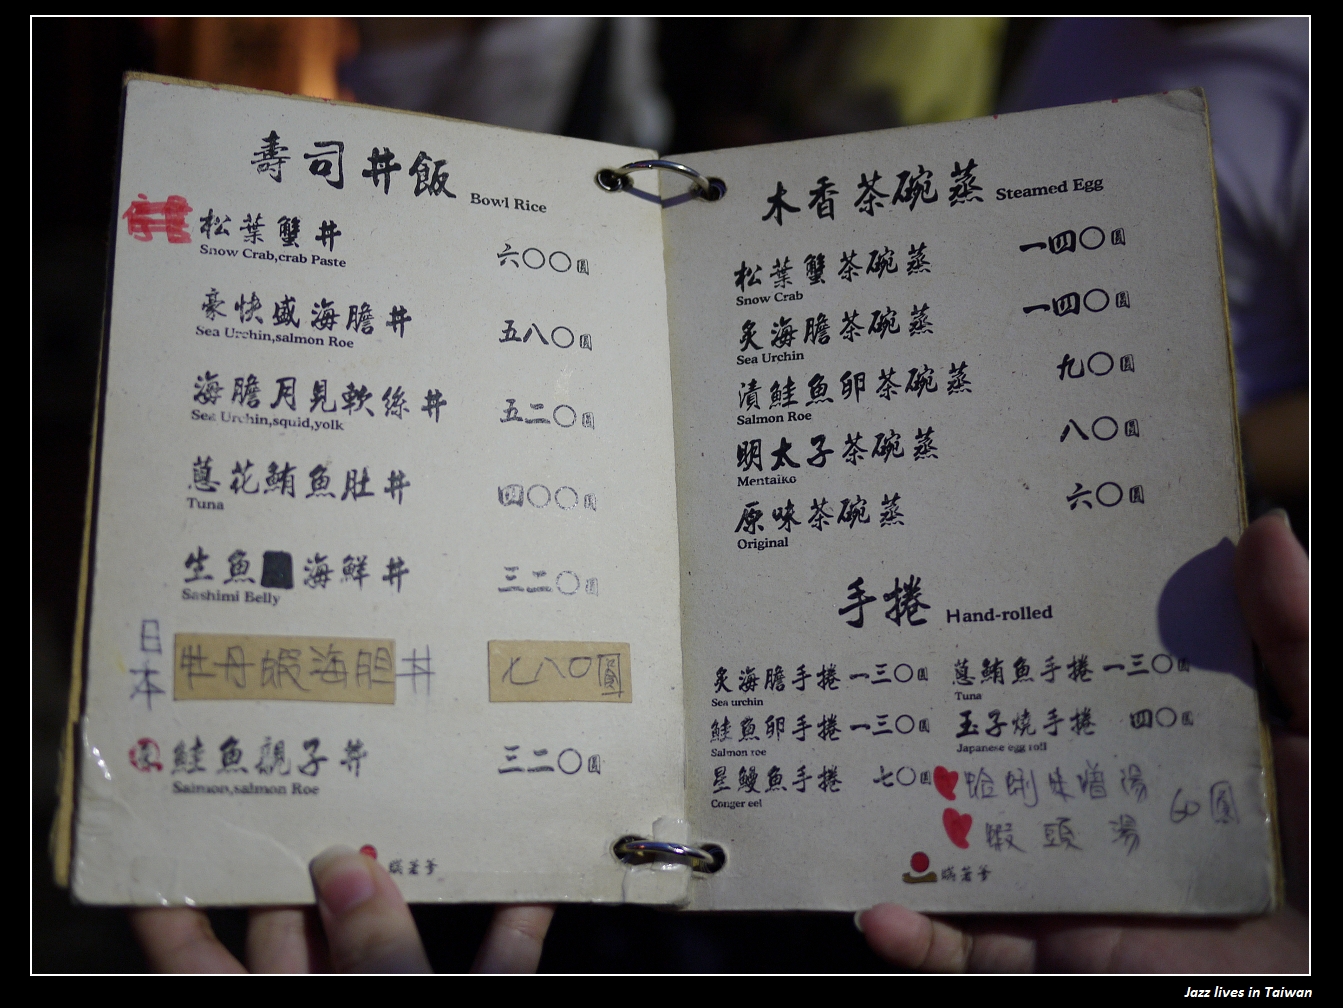 壽司丼飯 Bowl Rice
松葉蟹丼 六〇〇圓
Snow Crab,crab Paste
豪快盛海膽丼 五八〇圓
Sea Urchin,salmon Roe
海膽月見軟絲丼 五二〇圓
Sea Urchin,squid,yolk
蔥花鮪魚肚丼 四〇〇圓
Tuna
生魚 海鮮丼 三二〇圓
Sashimi Belly
日本 牡丹蝦海胆丼 七八〇圓
鮭魚親子丼 三二〇圓
Salmon,salmon Roe
木香茶碗蒸 Steamed Egg
松葉蟹茶碗蒸 一四〇圓
Snow Crab
炙海膽茶碗蒸 一四〇圓
Sea Urchin
漬鮭魚卵茶碗蒸 九〇圓
Salmon Roe
明太子茶碗蒸 八〇圓
Mentaiko
原味茶碗蒸 六〇圓
Original
手捲 Hand-rolled
炙海膽手捲 一三〇圓
Sea urchin
鮭魚卵手捲 一三〇圓
Salmon roe
星鰻魚手捲 七〇圓
Conger eel
蔥鮪魚手捲 一三〇圓
Tuna
玉子燒手捲 四〇圓
Japanese egg roll
蛤蜊味噌湯 60圓
蝦頭湯
Jazz lives in Taiwan